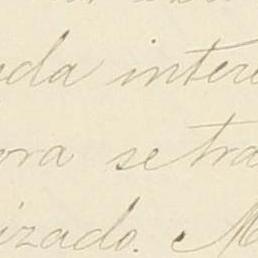 da intere
ora se tra
izado. M